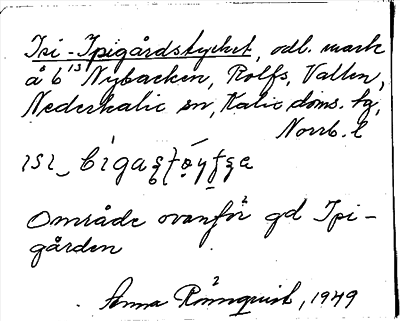 Isi-Ipigårdstycket, odl. mark
å 6¹³ Nybacken, Rolfs, Vallen,
Nederkalix sn, Kalix doms. tg,
Norrb. l
Område ovanför gd Ipi-
gården
Anna Rönnquist, 1949